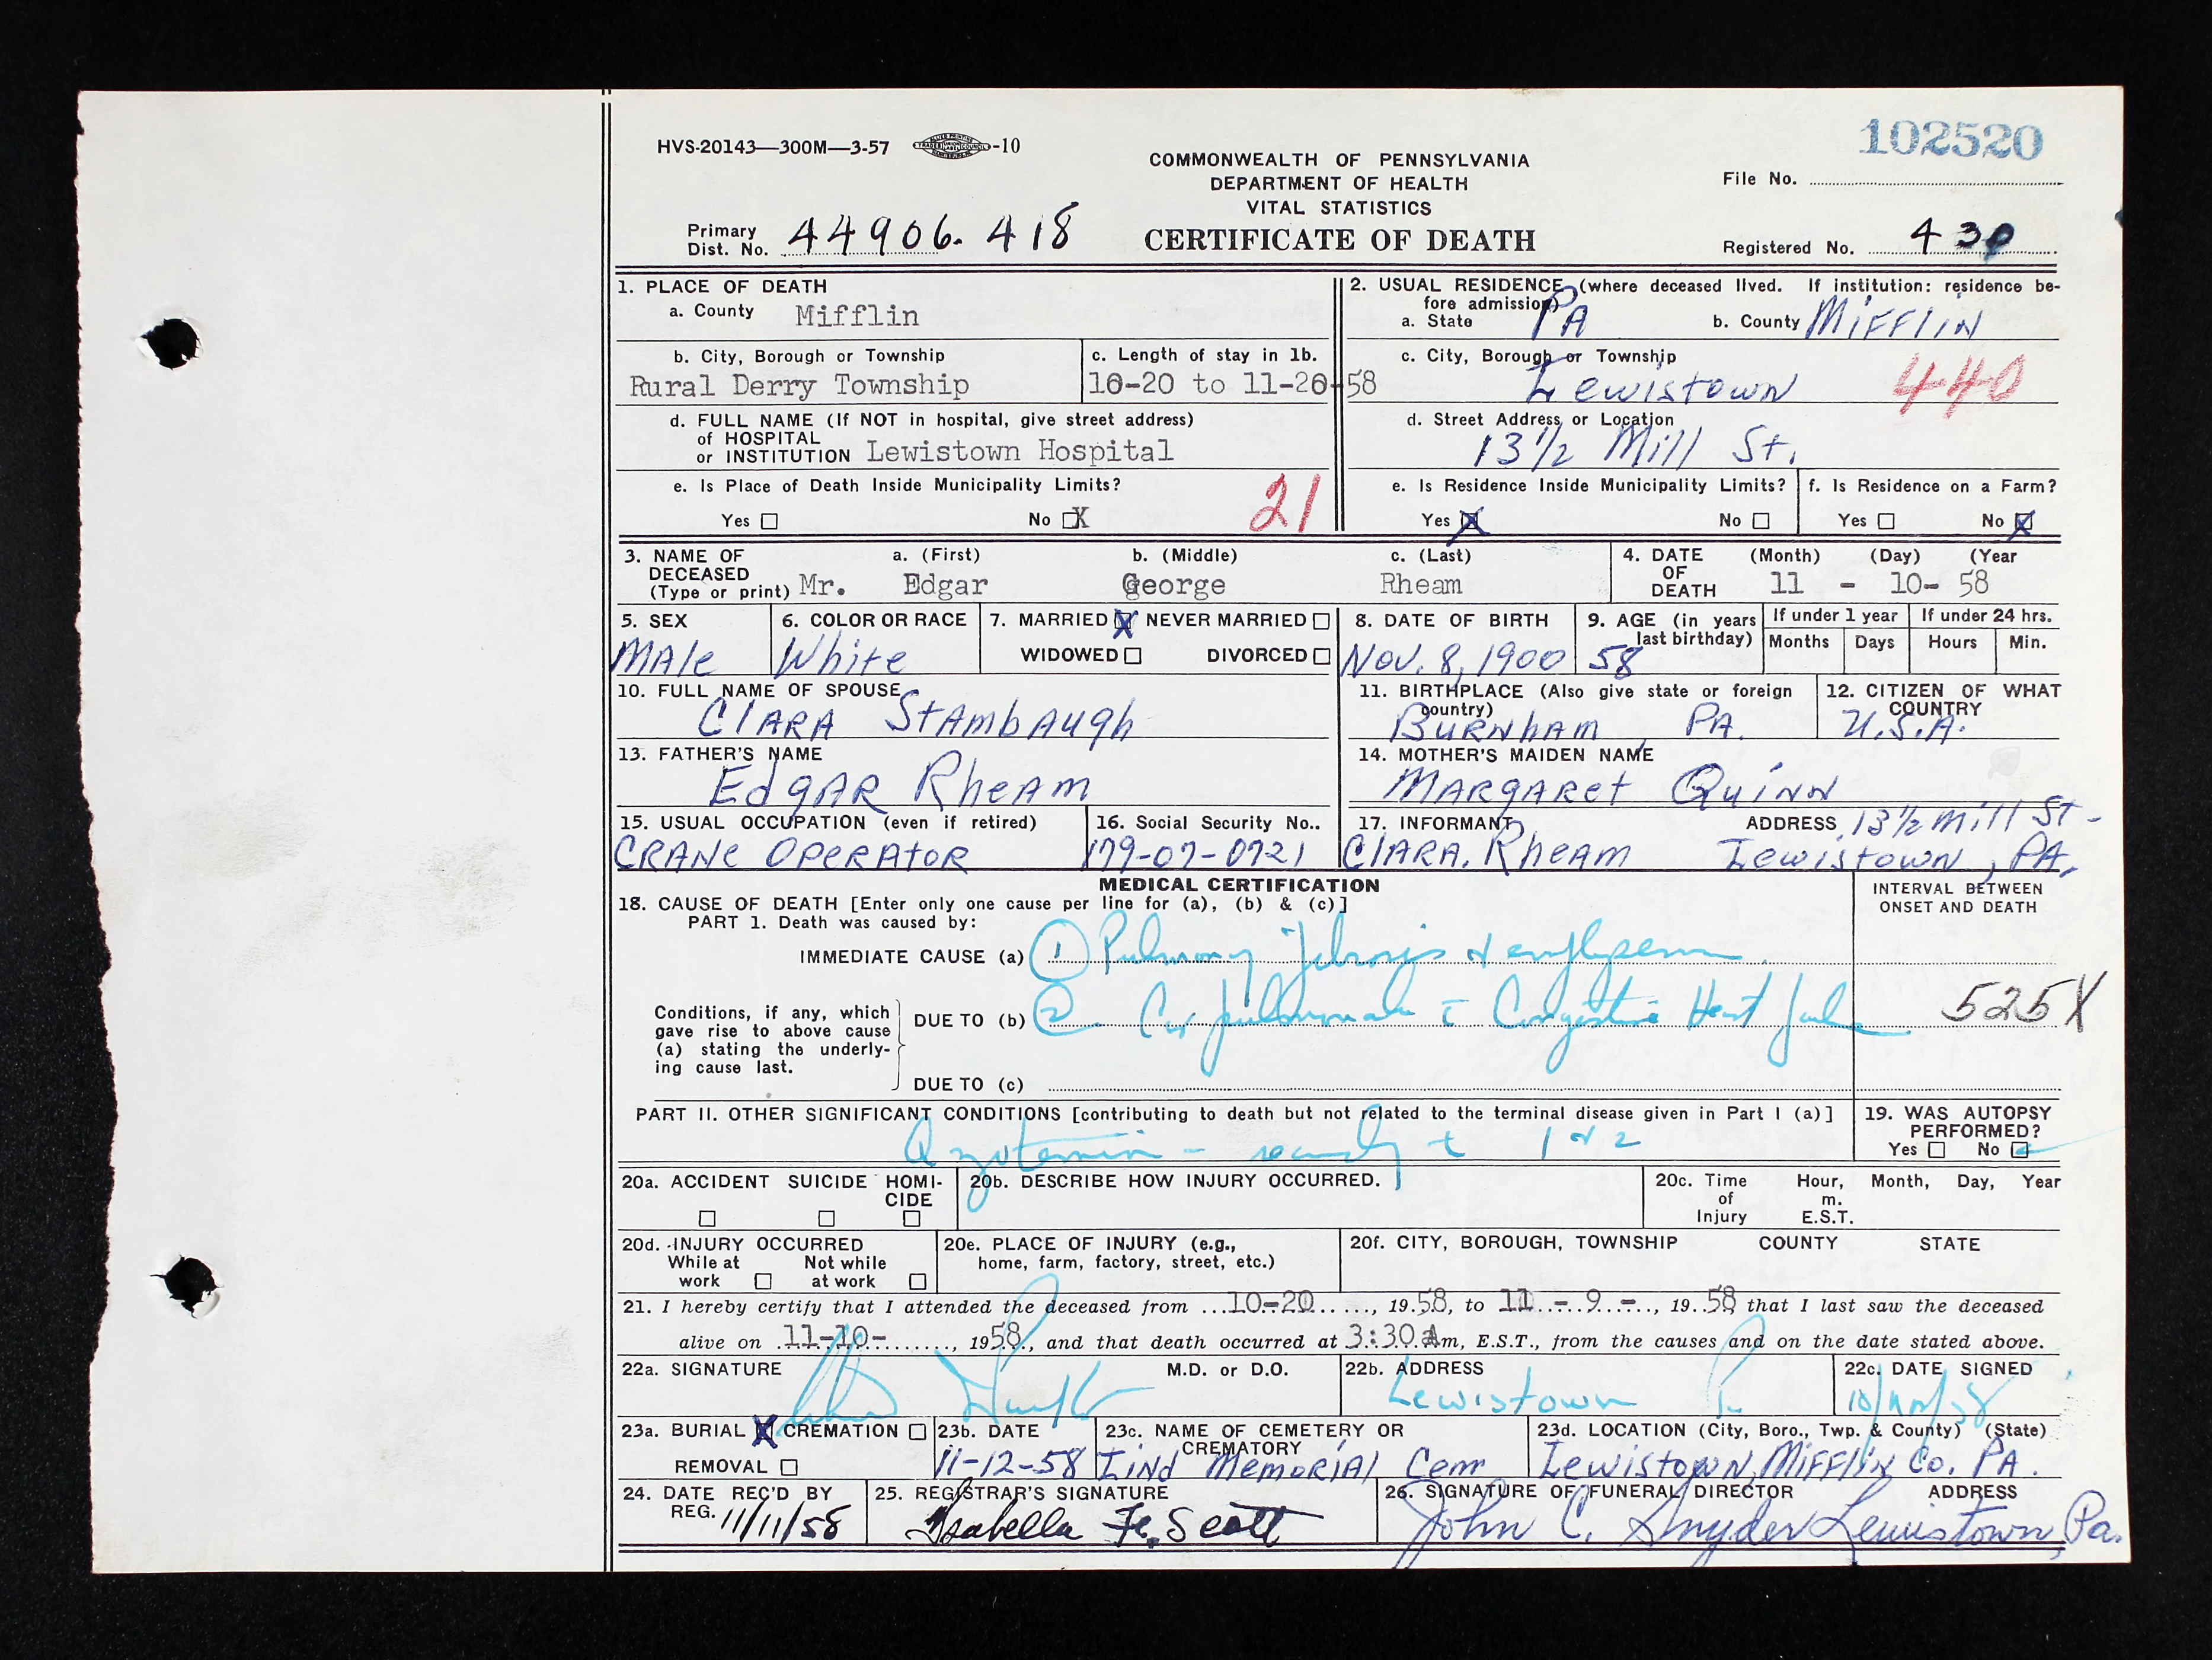 102520
HVS-20143—300M—3-57 -10
COMMONWEALTH OF PENNSYLVANIA
DEPARTMENT OF HEALTH
VITAL STATISTICS
CERTIFICATE OF DEATH
File No.
Primary Dist. No. 44906. 418
Registered No. 430
1. PLACE OF DEATH
a. County Mifflin
2. USUAL RESIDENCE (where deceased lived. If institution: residence before admission)
a. State PA b. County MIFFLIN
b. City, Borough or Township
Rural Derry Township
c. Length of stay in 1b.
10-20 to 11-20-58
c. City, Borough or Township
Lewistown 440
d. FULL NAME (If NOT in hospital, give street address)
of HOSPITAL
or INSTITUTION Lewistown Hospital
d. Street Address or Location
13½ Mill St.
e. Is Place of Death Inside Municipality Limits? 21
Yes ☐ No X
e. Is Residence Inside Municipality Limits?
Yes X No ☐
f. Is Residence on a Farm?
Yes ☐ No X
3. NAME OF DECEASED (Type or print) a. (First) b. (Middle) c. (Last)
Mr. Edgar George Rheam
4. DATE OF DEATH (Month) (Day) (Year
11 - 10- 58
5. SEX
MAle
6. COLOR OR RACE
White
7. MARRIED X NEVER MARRIED ☐
WIDOWED ☐ DIVORCED ☐
8. DATE OF BIRTH
Nov. 8, 1900
9. AGE (in years last birthday)
58
If under 1 year
Months Days
If under 24 hrs.
Hours Min.
10. FULL NAME OF SPOUSE
ClARA StAmbAugh
11. BIRTHPLACE (Also give state or foreign country)
BURNhAM, PA.
12. CITIZEN OF WHAT COUNTRY
U.S.A.
13. FATHER'S NAME
EdgAR RheAm
14. MOTHER'S MAIDEN NAME
MARgARet QuiNN
15. USUAL OCCUPATION (even if retired)
CRANe OpeRAtoR
16. Social Security No..
179-07-0721
17. INFORMANT ADDRESS 13½ Mill St-
ClARA. RheAm Lewistown, PA.
MEDICAL CERTIFICATION
INTERVAL BETWEEN ONSET AND DEATH
18. CAUSE OF DEATH [Enter only one cause per line for (a), (b) & (c)]
PART 1. Death was caused by:
IMMEDIATE CAUSE (a) 1 Pulmonary fibrosis & emphysema
Conditions, if any, which gave rise to above cause (a) stating the underlying cause last.
DUE TO (b) 2 Cor pulmonale c̄ Congestive Heart failure
525X
DUE TO (c)
PART II. OTHER SIGNIFICANT CONDITIONS [contributing to death but not related to the terminal disease given in Part I (a)]
Azotemia - secondary to 1 & 2
19. WAS AUTOPSY PERFORMED?
Yes ☐ No ☐
20a. ACCIDENT SUICIDE HOMICIDE
20b. DESCRIBE HOW INJURY OCCURRED.
20c. Time of Injury Hour, m. E.S.T. Month, Day, Year
20d. INJURY OCCURRED
While at work ☐ Not while at work ☐
20e. PLACE OF INJURY (e.g., home, farm, factory, street, etc.)
20f. CITY, BOROUGH, TOWNSHIP COUNTY STATE
21. I hereby certify that I attended the deceased from 10-20, 1958, to 11 - 9 -, 1958 that I last saw the deceased
alive on 11-10-, 1958, and that death occurred at 3:30 Am, E.S.T., from the causes and on the date stated above.
22a. SIGNATURE M.D. or D.O.
22b. ADDRESS
Lewistown Pa
22c. DATE SIGNED
23a. BURIAL X CREMATION ☐
REMOVAL ☐
23b. DATE
11-12-58
23c. NAME OF CEMETERY OR CREMATORY
Lind MemoRiAl Cem
23d. LOCATION (City, Boro., Twp. & County) (State)
Lewistown, MiFFliN Co. PA.
24. DATE REC'D BY REG. 11/11/58
25. REGISTRAR'S SIGNATURE
Isabella Fe. Scott
26. SIGNATURE OF FUNERAL DIRECTOR ADDRESS
John C. Snyder Lewistown, Pa.